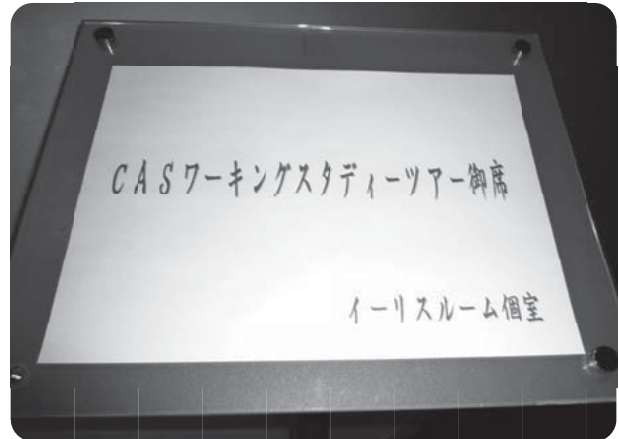 CASワーキングスタディーツアー御席
イーリスルーム個室